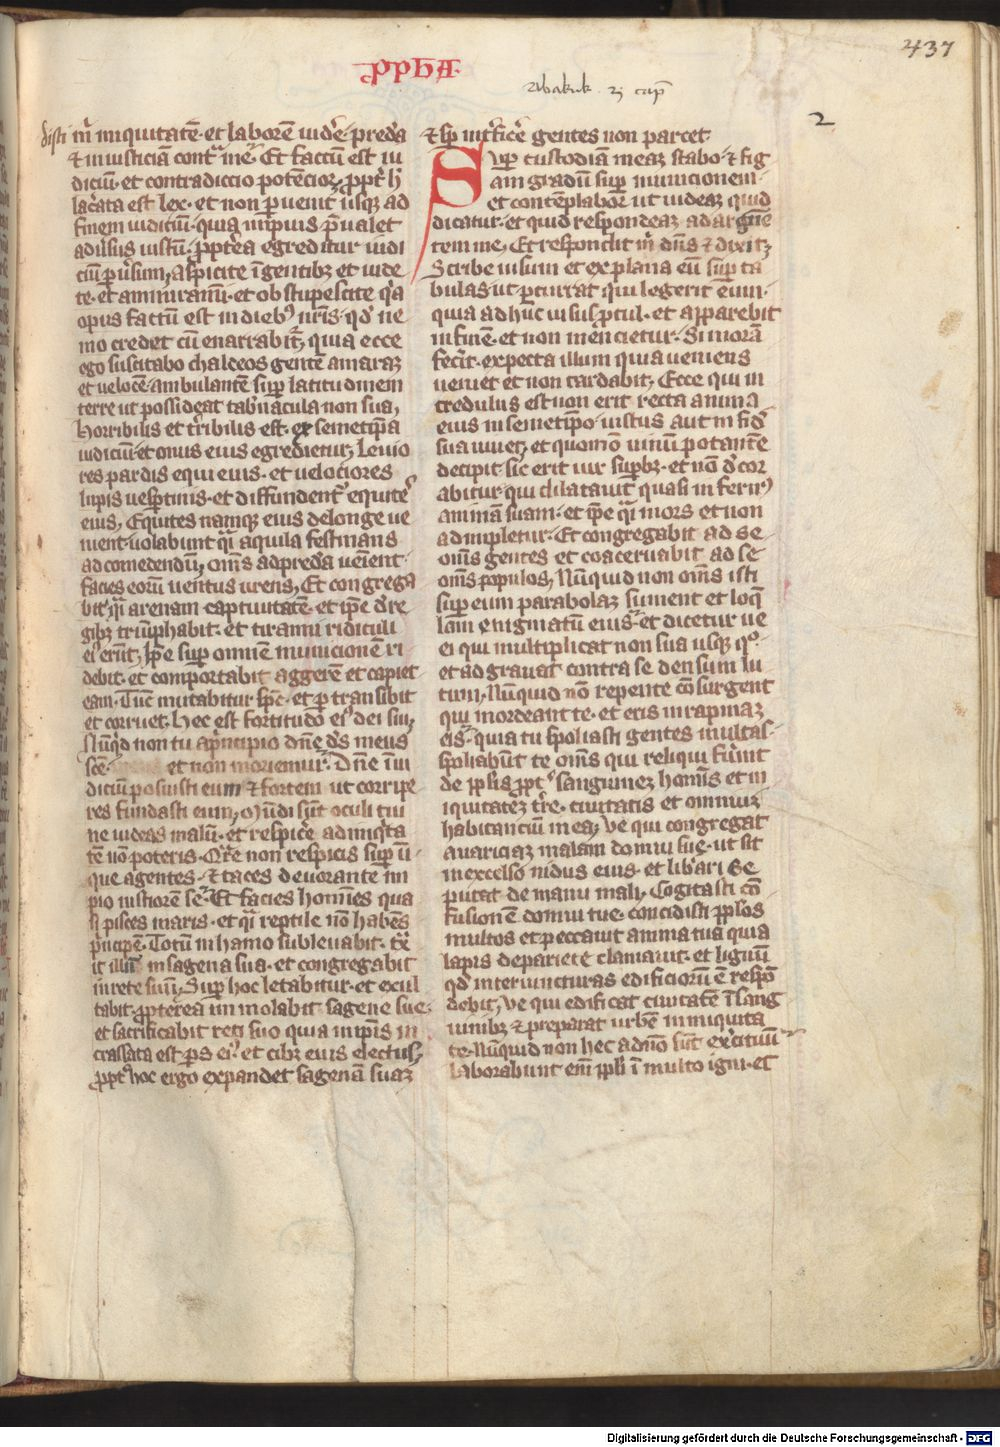 437
ꝓphA
Abakuk 2 cap
2
disti
m̅ iniquitatē et laborē videre predā
et iniusticiā cont̄ me Et factū est iu
diciū et contradiccio potēcior ꝓpt̄ h
lac̄ata est lex et non ꝑuenit usqꝫ ad
finem iudiciū quia impius p̄ualet
aduersus iustū ꝓpt̄ea egreditur iudi
ciū ꝑuersum Aspicite ī gentibꝫ et uide
te et ammiramī et obstupescite qꝛa
opus factū est in diebꝫ ur̄is qd̄ ne
mo credet cū enarrabit̄ quia ecce
ego suscitabo chaldeos gentē amaraꝫ
et uelocē ambulantē suꝑ latitudinem
terre ut possideat tab̄nacula non sua
Horribilis et t̄ribilis est ex semetip̄a
iudiciū et onus eius egredietur Leuio
res pardis equi eius et uelociores
lupis uesꝑtinis et diffundent̄ equites
eius Equites namqꝫ eius de longe ue
nient uolabunt q̄i aquila festinans
ad comedendū om̄s ad predā ueīent
facies eorū uentus urens Et congrega
bit q̄i arenam captiuitatē et ip̄e de re
gibꝫ triūphabit et tiranni ridiculi
ei erūt Ip̄e suꝑ omnē municionē ri
debit et comportabit aggerē et capiet
eam Tūc mutabitur sp̄c et ꝑtransibit
et corruet hec est fortitudo ei dei sui
Nūqd non tu a p̄ncipio dn̄e ds̄ meus
sc̄e et non moriemur dn̄e ī iu
diciū posuisti eum et fortem ut corripe
res fundasti eum Mūdi sūt oculi tui
ne uideas malū et respice ad iniq̄ta
tē nō poteris Q̄re non respicis suꝑ i
que agentes et taces deuorante im
pio iustiorē se Et facies homīes qua
si pisces maris et q̄i reptile nō habēs
p̄ncipē Totū in hamo subleuabit t̄
it illū in sagena sua et congregabit
in rete suū Suꝑ hoc letabitur et exul
tabit ꝓpterea immolabit sagene sue
et sacrificabit reti suo quia in ip̄is in
crassata est ps ei et cibꝫ eius electus
ꝓpt̄ hoc ergo expandet sagenā suaꝫ
et sp̄ int̄ficere gentes non parcet
Suꝑ custodiā meaꝫ stabo et fig
am gradū suꝑ municionem
et contēplabor ut uideaꝫ quid
dicatur et quid respondeaꝫ ad argue
rem me Et respondit m̄ dn̄s et dixit
Scribe uisum et explana eū suꝑ ta
bulas ut ꝑcurrat qui legerit eum
quia adhuc uisus ꝓcul et apparebit
in finē et non mēcietur Si morā
fecerit expecta illum quia ueniens
ueniet et non tardabit Ecce qui in
credulus est non erit recta anima
eius in semetip̄o iustus aut in fide
sua uiuet et quomō uinū potante
decipit sic erit uir suꝑbꝫ et nō decor
abitur qui dilatauit quasi inferꝰ
animā suam et ip̄e q̄i mors et non
adimpletur Et congregabit ad se
om̄s gentes et coaceruabit ad se
om̄s populos Nūquid non om̄s isti
suꝑ eum parabolaꝫ sument et loq̄
lam enigmatū eius et dicetur ue
ei qui multiplicat non sua usqꝫ qo
et adgrauat contra se densum lu
tum Nūquid nō repente cōsurgent
qui mordeant te et eris in rapinaꝫ
eis quia tu spoliasti gentes multas
spoliabūt te om̄s qui reliqui fūint
de pplis ꝓpt̄ sanguineꝫ homīs et in
iquitateꝫ tre ciuitatis et omniuꝫ
habitanciū in ea Ve qui congregat
auariciaꝫ malam domui sue ut sit
in excelso nidus eius et lib̄ari se
putat de manu mali Cogitasti cō
fusionē domui tue concidisti pplos
multos et peccauit anima tua quia
lapis de pariete clamauit et lignū
qd inter iuncturas edificiorū ē respō
debit Ve qui edificat ciuitatē ī sang
uinibꝫ et preparat urbē in iniquita
te Nūquid non hec a dn̄o sūt exercituū
laborabunt em̄ ppli ī multo igni et
Digitalisierung gefördert durch die Deutsche Forschungsgemeinschaft - DFG